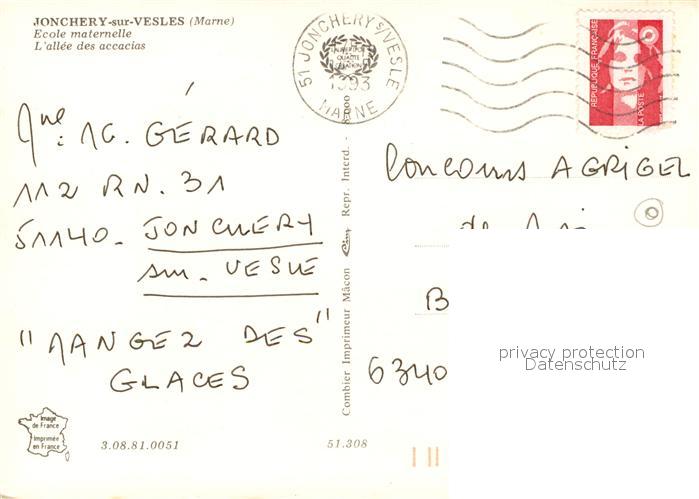 JONCHERY-sur-VESLES (Marne)
Ecole maternelle
L'allée des accacias
51 JONCHERY S/VESLE
1993
MARNE
REPUBLIQUE FRANÇAISE
LA POSTE
MG. GÉRARD
112 RN. 31
51140. JONCHERY
sur. VESLE
"MANGEZ DES"
GLACES
Combier Imprimeur Mâcon Cim Repr. Interd.
Concours AGRIGEL
B
6340
privacy protection
Datenschutz
Image
de France
Imprimée
en France
3.08.81.0051
51.308